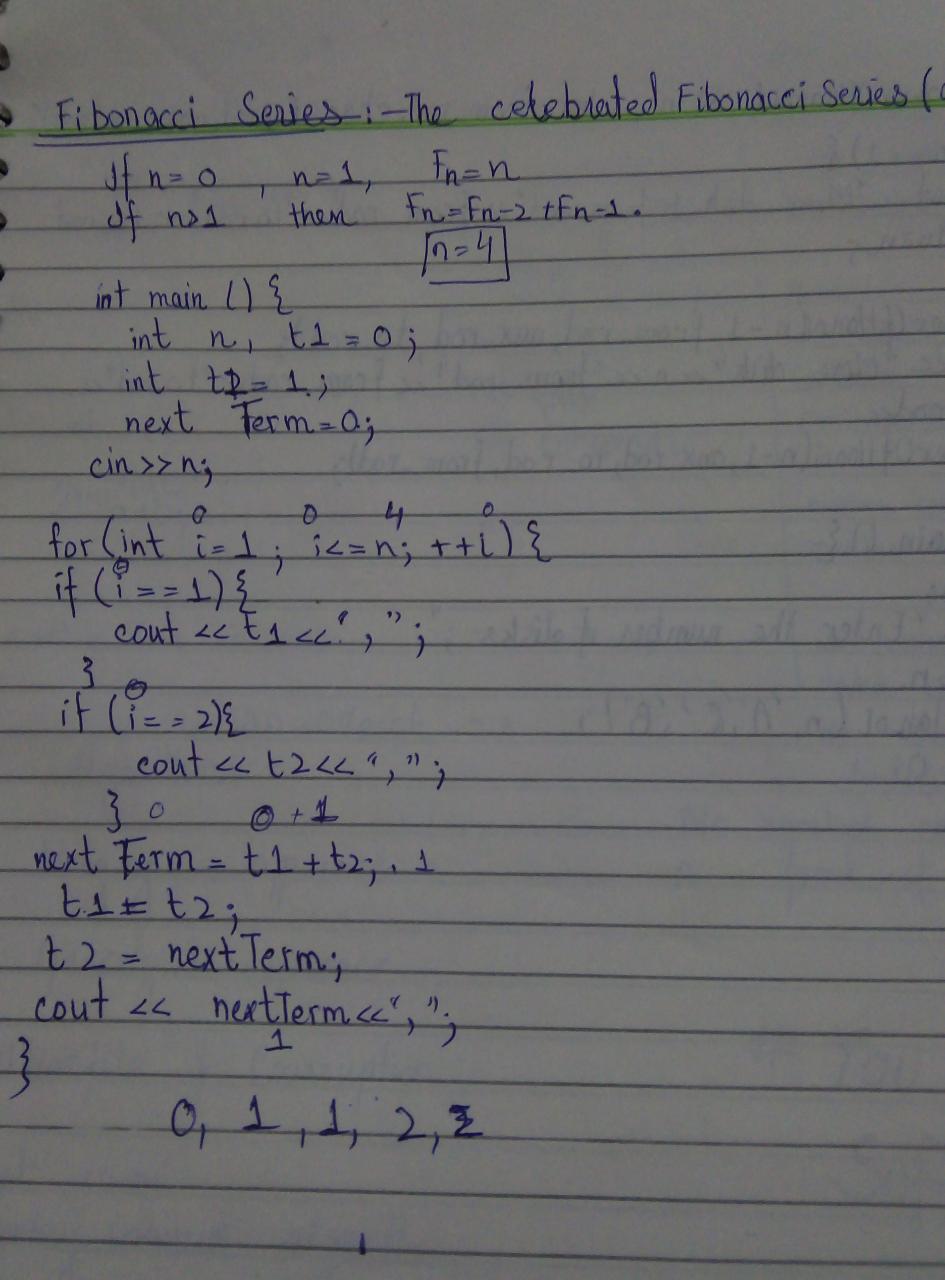 Fibonacci Series :- The celebrated Fibonacci Series (
If n=0 , n=1, Fn=n
If n>1 then Fn=Fn-2 +Fn-1.
n=4
int main () {
int n, t1 = 0;
int t2 = 1;
next Term = 0;
cin>>n;
0 0 4 0
for (int i=1 ; i<=n; ++i) {
0
if (i==1) {
cout << t1 << “,”;
}
0
if (i==2){
cout << t2 << “,”;
} 0 0+1
next Term = t1 + t2; . 1
t1 = t2;
t2 = nextTerm;
cout << nextTerm << “,”;
1
}
0, 1, 1, 2,